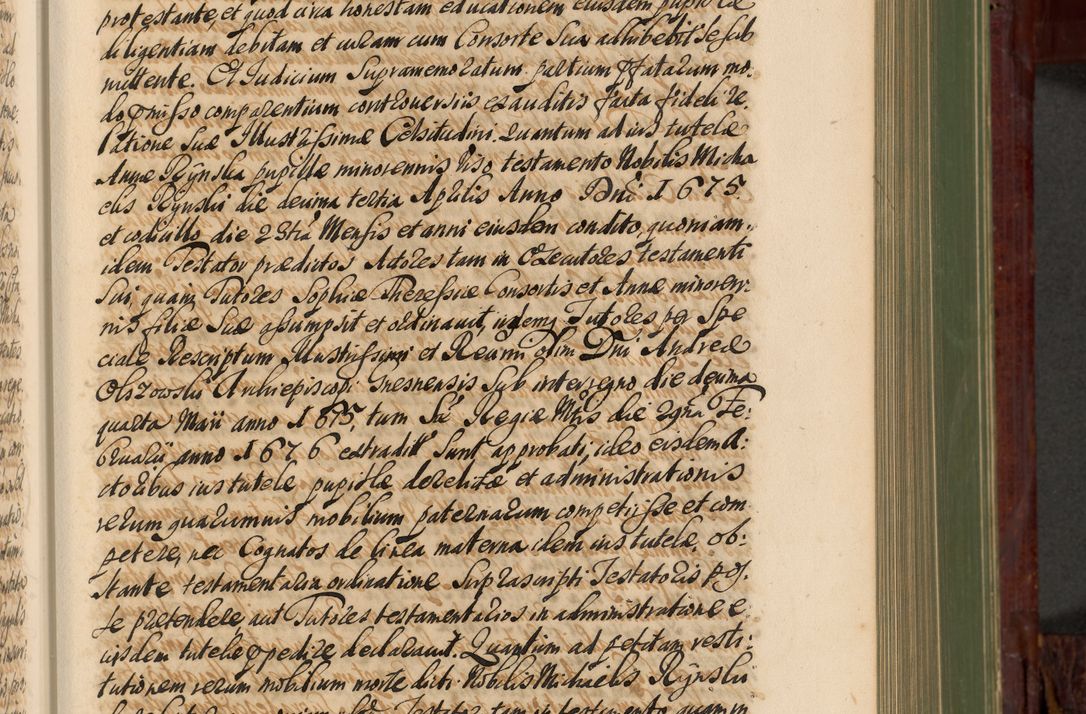 protestante, et quod circa honestam educationem eiusdem pupillæ
diligentiam debitam et curam cum Consorte Sua adhibebit se sub
mittente. Et Judicium Supramemoratum partium pfatarum mo:
do pmisso comparentium controversiis exauditis facta fideli re,
latione Suæ Illustrissimæ Celsitudini. Quantum ad ius tutelæ
Annæ Rynska pupillæ minorennis viso testamento Nobilis Micha
elis Rynski die decima tertia Aprilis Anno Dni 1675.
et codicillo die 23tia Mensis et anni eiusdem condito, quoniam
idem Testator prædictos Actores tam in Executores testamenti
Sui, quam Tutores Sophiæ Theressiæ Consortis et Annæ minoren-
nis filiæ Suæ assumpsit et ordinavit, iidemq Tutores per Spe
ciale Rescriptum Illustrissimi et Reverndmi olim Dni Andreæ
Olszowski Archiepiscopi Gnesnensis Sub interregno die decima
quarta Maii anno 1675, tum Sæ Regiæ Mtis die 29na Fe:
bruarii anno 1676 extraditt Sunt approbati, ideo eisdem A:
ctoribus ius tutelæ pupillæ derelictæ et administrationis
rerum quarumvis mobilium paternarum competiisse et com
petere, nec Cognatos de linea materna idem ius tutelæ, ob:
stante testamentaria ordinatione Suprascripti Testatoris pos,
se prætendere aut Tutores testamentarios in administratione e
iusdem tutelæ impedire declaravit. Quantum ad petitam resti
tutionem rerum mobilium morte dicti Nobilis Michaelis Rynski